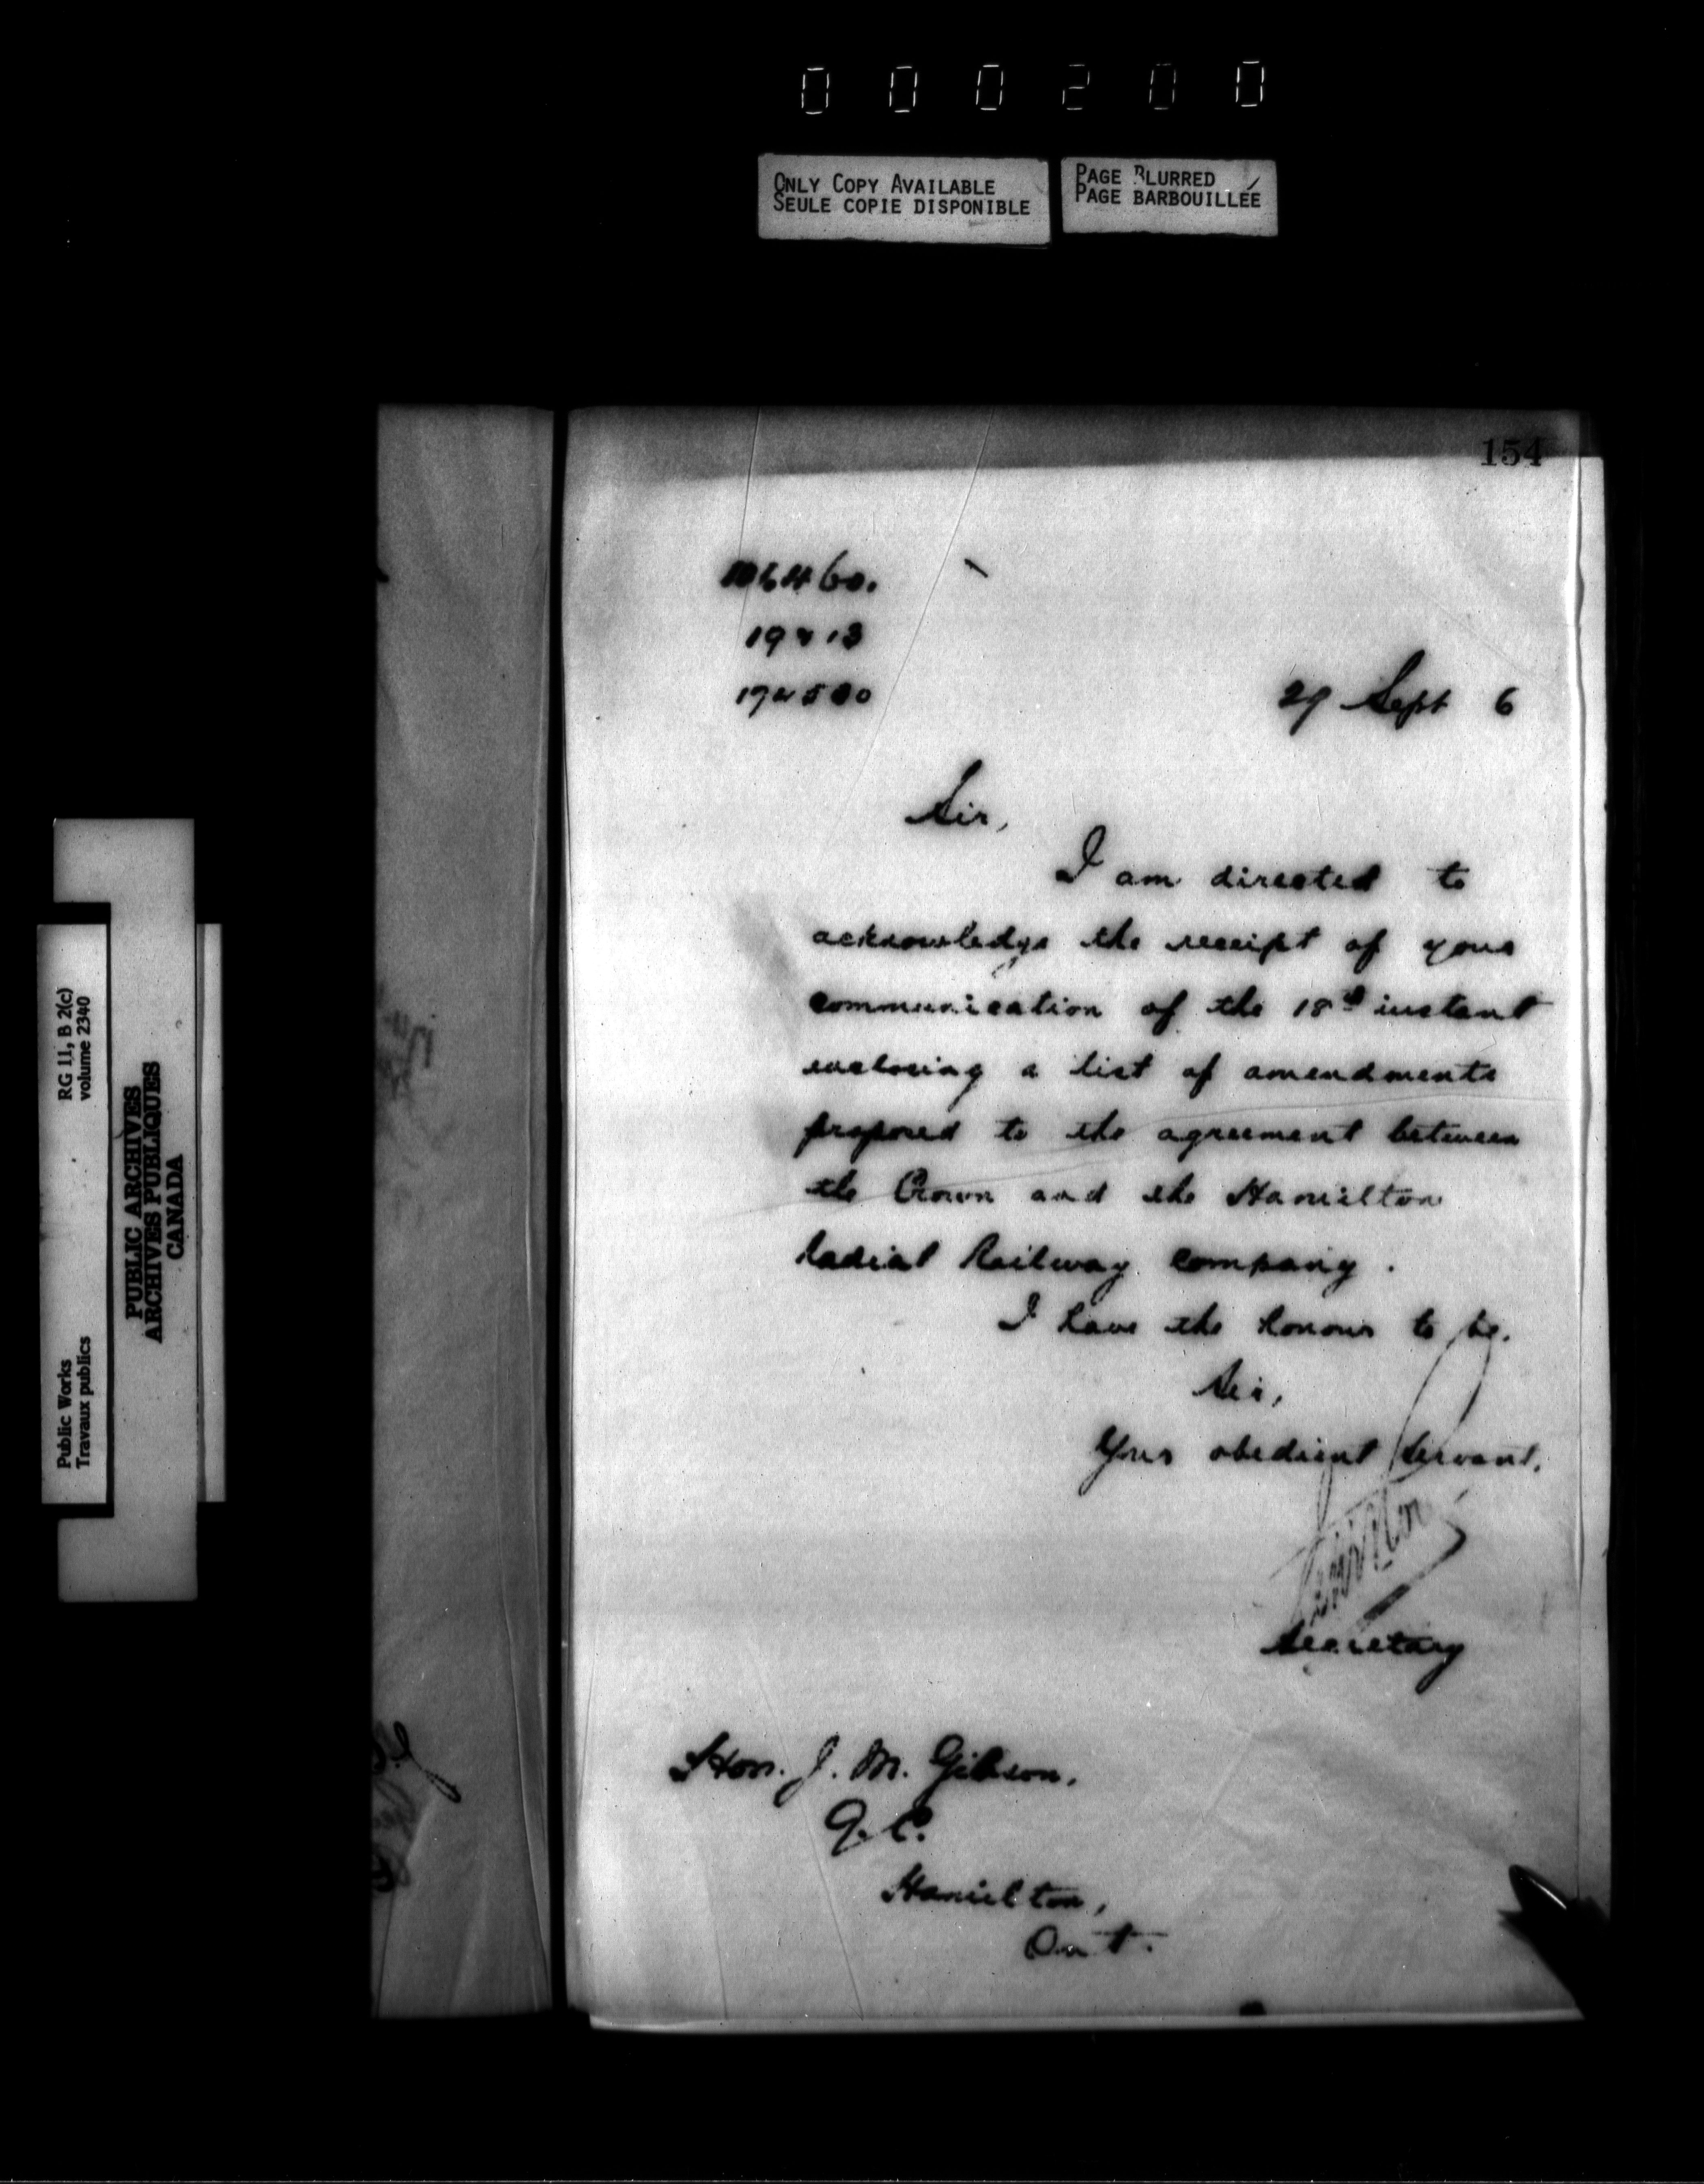 000200
ONLY COPY AVAILABLE
SEULE COPIE DISPONIBLE
PAGE BLURRED
PAGE BARBOUILLÉE
154
Sept 6
Sir,
I am directed to
acknowledge the receipt of your
communication of the 18th instant
enclosing a list of amendments
proposed to the agreement between
the Crown and the Hamilton
Radial Railway Company.
I have the honour to be.
Sir,
Your obedient servant,
Secretary
Hon. J. M. Gibson,
Hamilton,
Ont.
Public Works
Travaux publics
RG 11, B 2(c)
volume 2340
PUBLIC ARCHIVES
ARCHIVES PUBLIQUES
CANADA